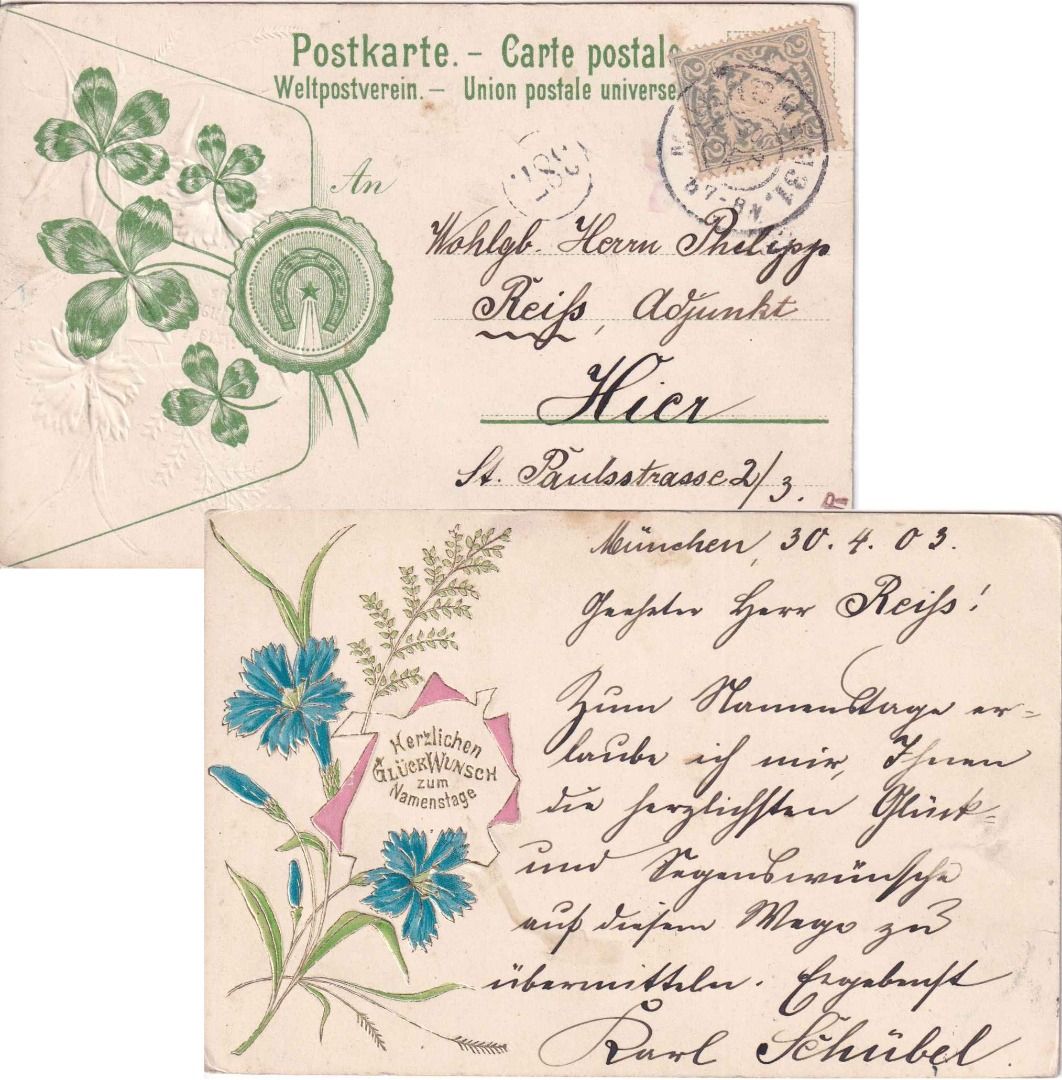 Postkarte. – Carte postale
Weltpostverein. – Union postale universe
387.
An
Wohlgb. Herrn Philipp
Reiß, Adjunkt
Hier
St. Paulsstrasse 2/3.
München, 30. 4. 03.
Geehrter Herr Reiß!
Zum Namenstage er-
laube ich mir, Ihnen
die herzlichsten Glück-
und Segenswünsche
auf diesem Wege zu
übermitteln. Ergebenst
Karl Schübel.
Herzlichen
GlückWunsch
zum
Namenstage